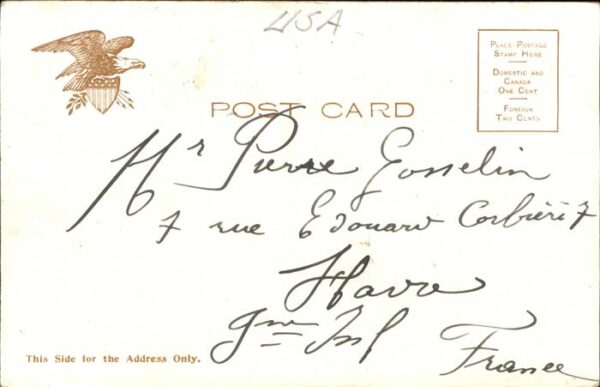 USA
PLACE POSTAGE
STAMP HERE
DOMESTIC AND
CANADA
ONE CENT
FOREIGN
TWO CENTS
POST CARD
Mr Pierre Gosselin
7 rue Edouard Corbière 7
Havre
Inf
France
This Side for the Address Only.